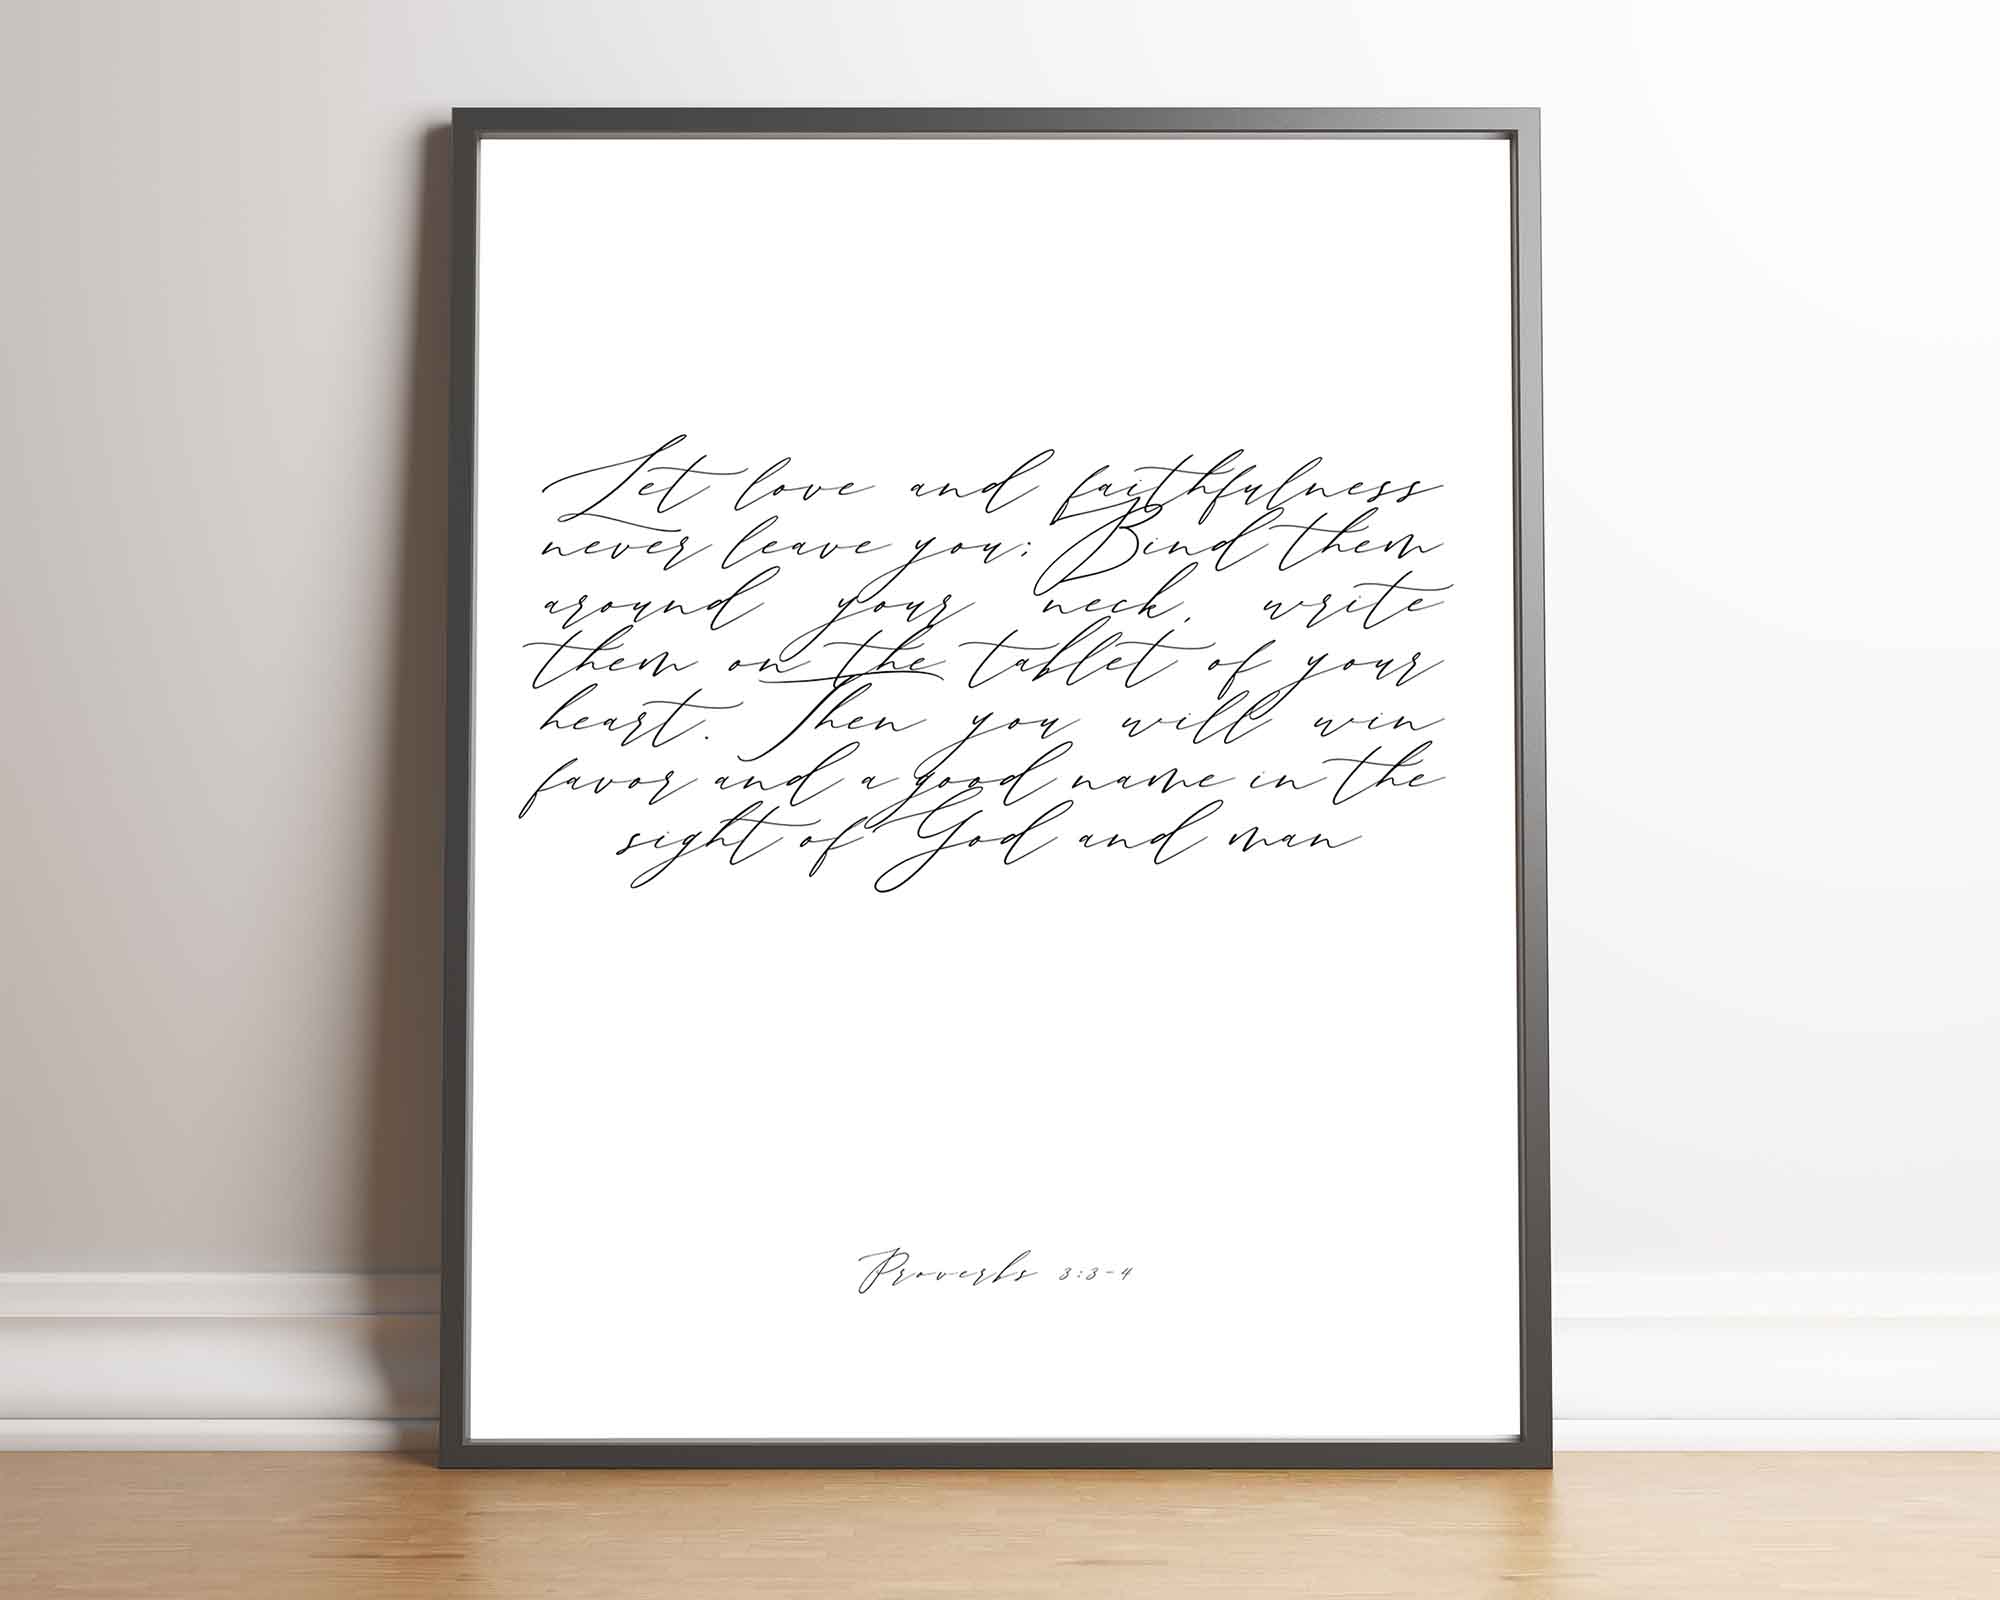 Let love and faithfulness
never leave you; Bind them
around your neck, write
them on the tablet of your
heart. Then you will win
favor and a good name in the
sight of God and man
Proverbs 3:3-4